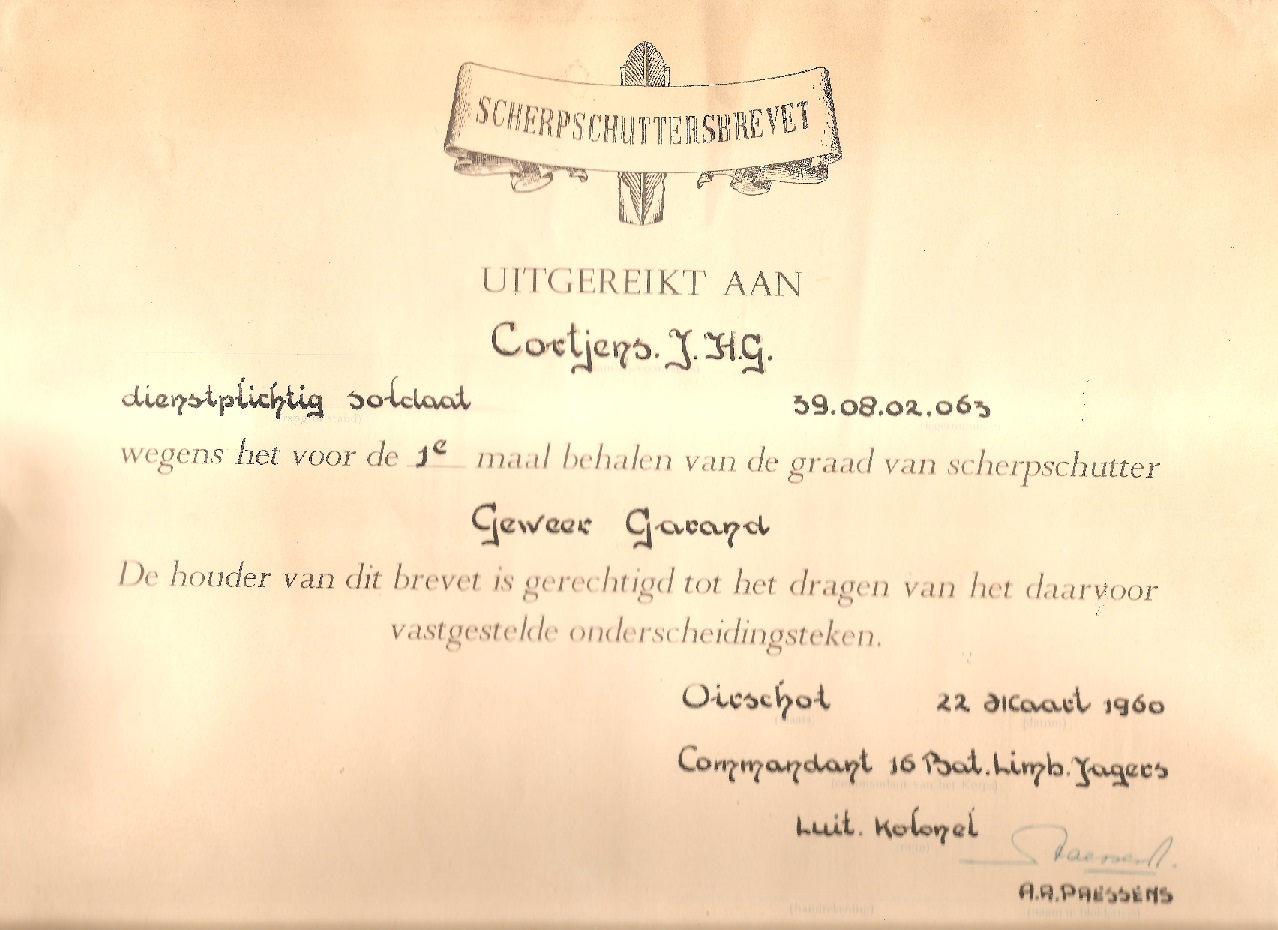 SCHERPSCHUTTERSBREVET
UITGEREIKT AAN
Cortjens. J. H.G.
dienstplichtig soldaat 39.08.02.063
wegens het voor de 1e maal behalen van de graad van scherpschutter
Geweer Garand
De houder van dit brevet is gerechtigd tot het dragen van het daarvoor
vastgestelde onderscheidingsteken.
Oirschot 22 Maart 1960
Commandant 16 Bat. Limb. Jagers
(commandant van het Korps)
Luit. Kolonel
A.A. PAESSENS